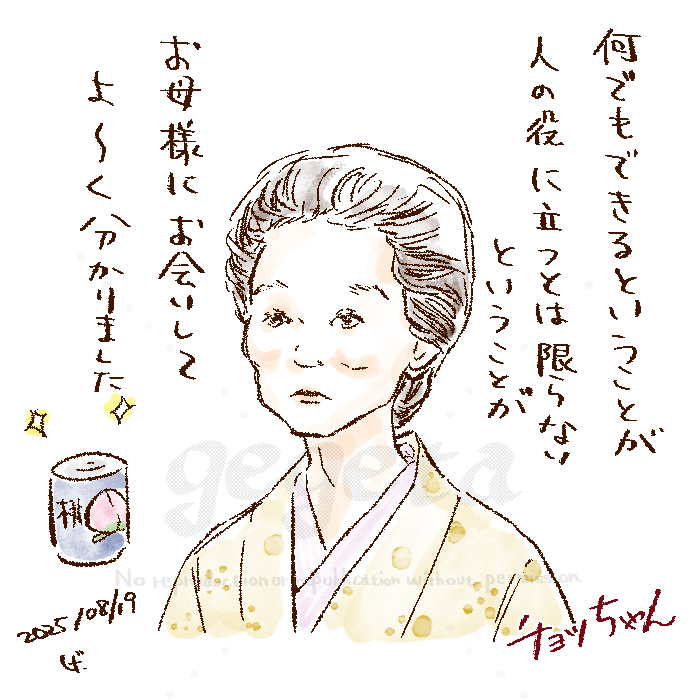 何でもできるということが
人の役に立つとは限らない
ということが
お母様にお会いして
よ〜く分かりました
桃
2025/08/19
チョッちゃん
gegeta
No reproduction or republication without permission.